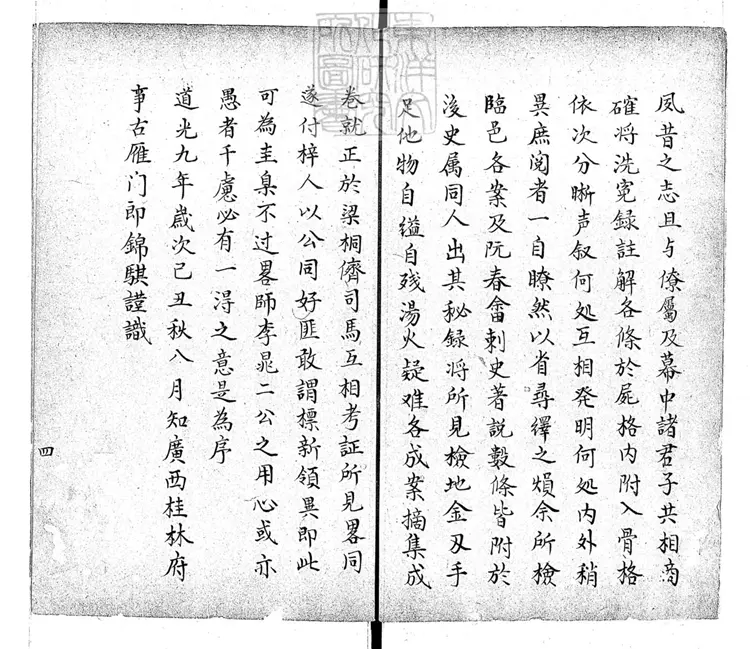 夙昔之志且与僚屬及幕中諸君子共相商
確将洗寃録註解各條於屍格内附入骨格
依次分晰声叙何处互相発明何处内外稍
異庶阅者一自瞭然以省尋繹之煩余所檢
臨邑各案及阮春畬刺史著説數條皆附於
後史属同人出其秘録将所見檢地金刃手
足他物自縊自残湯火疑难各成案摘集成
卷就正於梁桐儕司馬互相考証所見畧同
遂付梓人以公同好匪敢謂標新領異即此
可為圭臬不过畧師李晁二公之用心或亦
愚者千慮必有一淂之意是為序
道光九年歳次己丑秋八月知廣西桂林府
事古雁门郎錦騏謹識
四
東洋文
化研究
所圖書